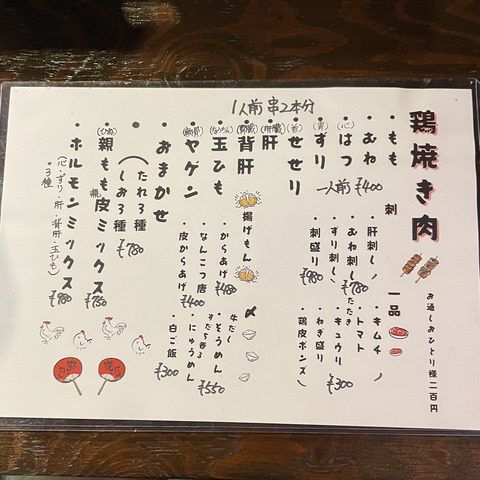 1人前 串2本分
鶏焼き肉
お通しおひとり様二百円
・もも
・むね
・はつ (心)
・ずり (胃)
・せせり (首)
一人前 ¥400
・肝 (肝臓)
・背肝 (腎臓)
・玉ひも (ちょうちん)
・ヤゲン (軟骨)
・おまかせ
(たれ3種
しお3種
¥780
・親もも皮ミックス (ひね)
¥780
・ホルモンミックス
・3種
(心・ずり・肝・背肝・玉ひも)
¥980
刺
・肝刺し
・むね刺し
たたき
・ずり刺し
¥780
・刺盛り
¥980
一品
・キムチ
・トマト
・キュウリ
¥300
・ねぎ盛り
・鶏皮ポンズ
揚げもん
・からあげ
¥480
・なんこつ唐
・皮からあげ
¥400
〆
牛だし
・そうめん
すだち香る
・にゅうめん
¥550
・白ご飯
¥300